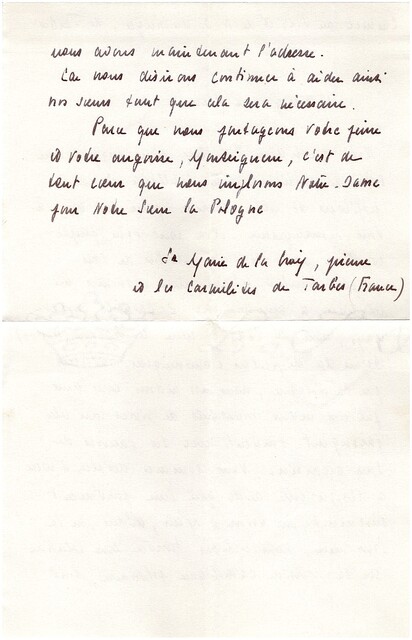 nous avons maintenant l'adresse.
Car nous désirons continuer à aider ainsi
nos sœurs tant que cela sera nécessaire.
Parce que nous partageons votre peine
et votre angoisse, Monseigneur, c'est de
tout cœur que nous implorons Notre-Dame
pour Notre Sœur la Pologne
Sr Marie de la Croix, prieure
et les Carmélites de Tarbes (France)